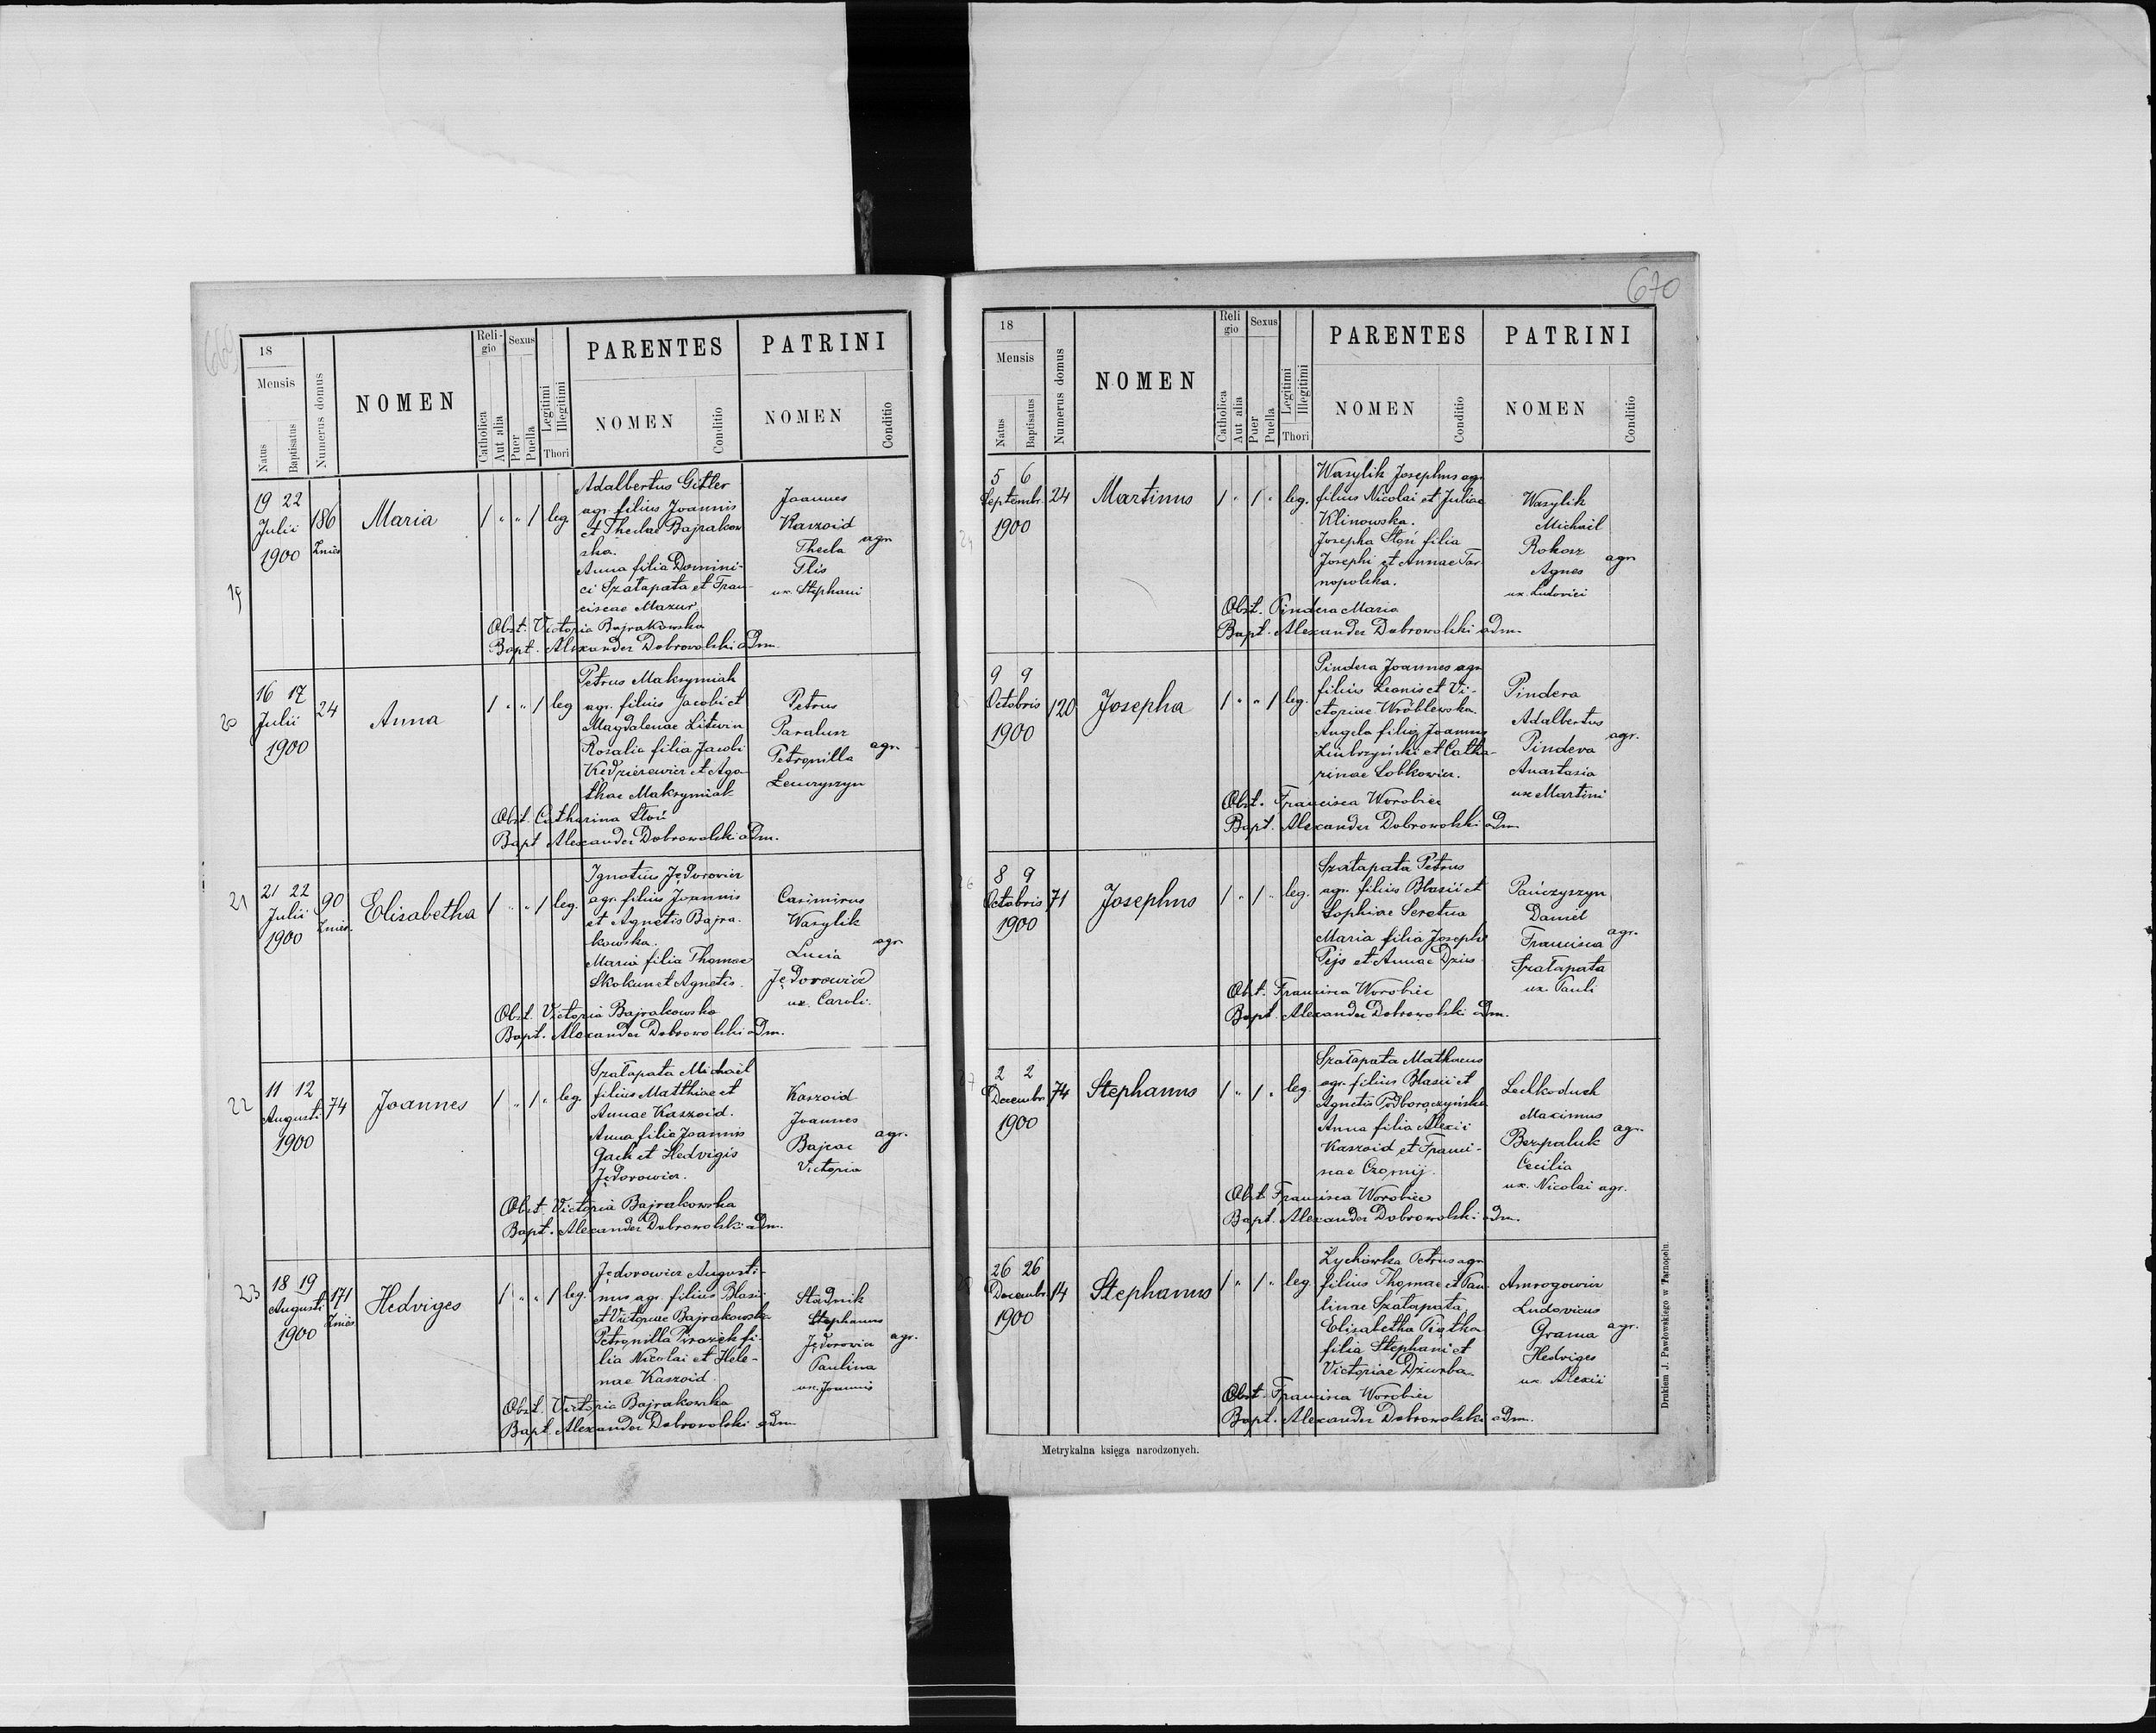 669
18
Mensis
Natus
Baptisatus
Numerus domus
NOMEN
Reli-
gio
Catholica
Aut alia
Sexus
Puer
Puella
Legitimi
Illegitimi
Thori
PARENTES
NOMEN
Conditio
PATRINI
NOMEN
Conditio
19
19 22
Julii
1900
186
Zniés
Maria
1 " " 1 leg.
Adalbertus Gitler
agr. filius Joannis
et Theclae Bajrakow
ska.
Anna filia Domini-
ci Szałapata et Fran-
ciscae Mazur
Joannes
Kaszoid
Thecla
Flis
ux. Stephani
agr.
Obst. Victoria Bajrakowska
Bapt. Alexander Dobrowolski adm.
20
16 17
Julii
1900
24
Anna
1 " " 1 leg
Petrus Maksymiak
agr. filius Jacobi et
Magdalenae Litwin
Rosalia filia Jacobi
Kędzierewicz et Aga-
thae Maksymiak
Petrus
Paralusz
Petronilla
Łewczyszyn
agr.
Obst. Catharina Słoń
Bapt Alexander Dobrowolski adm.
21
21 22
Julii
1900
90
Zniés.
Elisabetha
1 " " 1 leg.
Ignatius Jędorowicz
agr. filius Joannis
et Agnetis Bajra-
kowska.
Maria filia Thomae
Skokun et Agnetis.
Casimirus
Wasylik
Lucia
Jędorowicz
ux. Caroli.
agr
Obst. Victoria Bajrakowska
Bapt. Alexander Dobrowolski adm.
22
11 12
Augusti
1900
74
Joannes
1 " 1 " leg
Szałapata Michaël
filius Matthiae et
Annae Kaszoid.
Anna filia Joannis
Gach et Hedvigis
Jędorowicz.
Kaszoid
Joannes
Bajrac
Victoria
agr.
Obst. Victoria Bajrakowska
Bapt. Alexander Dobrowolski adm.
23
18 19
Augusti
1900
171
Zniés
Hedviges
1 " " 1 leg.
Jędorowicz Augusti-
nus agr. filius Blasii
et Victoriae Bajrakowska
Petronilla Pirożek fi-
lia Nicolai et Hele-
nae Kaszoid.
Stadnik
Stephanus
Jędorowicz
Paulina
ux. Joannis
agr.
Obst. Victoria Bajrakowska
Bapt. Alexander Dobrowolski adm
670
18
Mensis
Natus
Baptisatus
Numerus domus
NOMEN
Reli
gio
Catholica
Aut alia
Sexus
Puer
Puella
Legitimi
Illegitimi
Thori
PARENTES
NOMEN
Conditio
PATRINI
NOMEN
Conditio
24
5 6
Septembr.
1900
24
Martinus
1 " 1 " leg.
Wasylik Josephus agr.
filius Nicolai et Juliae
Klinowska.
Josepha Słoń filia
Josephi et Annae Tar-
nopolska.
Wasylik
Michaël
Rokosz
Agnes
ux. Ludovici
agr
Obst. Pindera Maria
Bapt. Alexander Dobrowolski adm.
25
9 9
Octobris
1900
120
Josepha
1 " " 1 leg.
Pindera Joannes agr.
filius Leonis et Vi-
ctoriae Wróblewska.
Angela filia Joannis
Zimbrzyński et Catha-
rinae Lobkowicz.
Pindera
Adalbertus
Pindera
Anastasia
ux Martini
agr.
Obst. Francisca Worobiec
Bapt. Alexander Dobrowolski adm
26
8 9
Octobris
1900
71
Josephus
1 " 1 " leg.
Szałapata Petrus
agr. filius Blasii et
Sophiae Seretna
Maria filia Josephi
Pejs et Annae Dzius
Pańczyszyn
Daniel
Francisca
Szałapata
ux. Pauli
agr.
Obst. Francisca Worobiec
Bapt. Alexander Dobrowolski adm.
27
2 2
Decembr.
1900
74
Stephanus
1 " 1 " leg.
Szałapata Mathaeus
agr. filius Blasii et
Agnetis Podhoroczyńska
Anna filia Alexii
Kaszoid et Franci-
scae Czornij.
Leskoduch
Maximus
Bezpaluk
Cecilia
ux. Nicolai agr.
agr.
Obst. Francisca Worobiec
Bapt. Alexander Dobrowolski adm.
28
26 26
Decembr.
1900
14
Stephanus
1 " 1 " leg.
Żychówka Petrus agr
filius Thomae et Pau-
linae Szałapata.
Elisabetha Piątka
filia Stephani et
Victoriae Dziurba.
Amrogowicz
Ludovicus
Grama
Hedviges
ux. Alexii
agr.
Obst. Francisca Worobiec
Bapt. Alexander Dobrowolski adm.
Metrykalna księga narodzonych.
Drukiem J. Pawłowskiego w Tarnopolu.